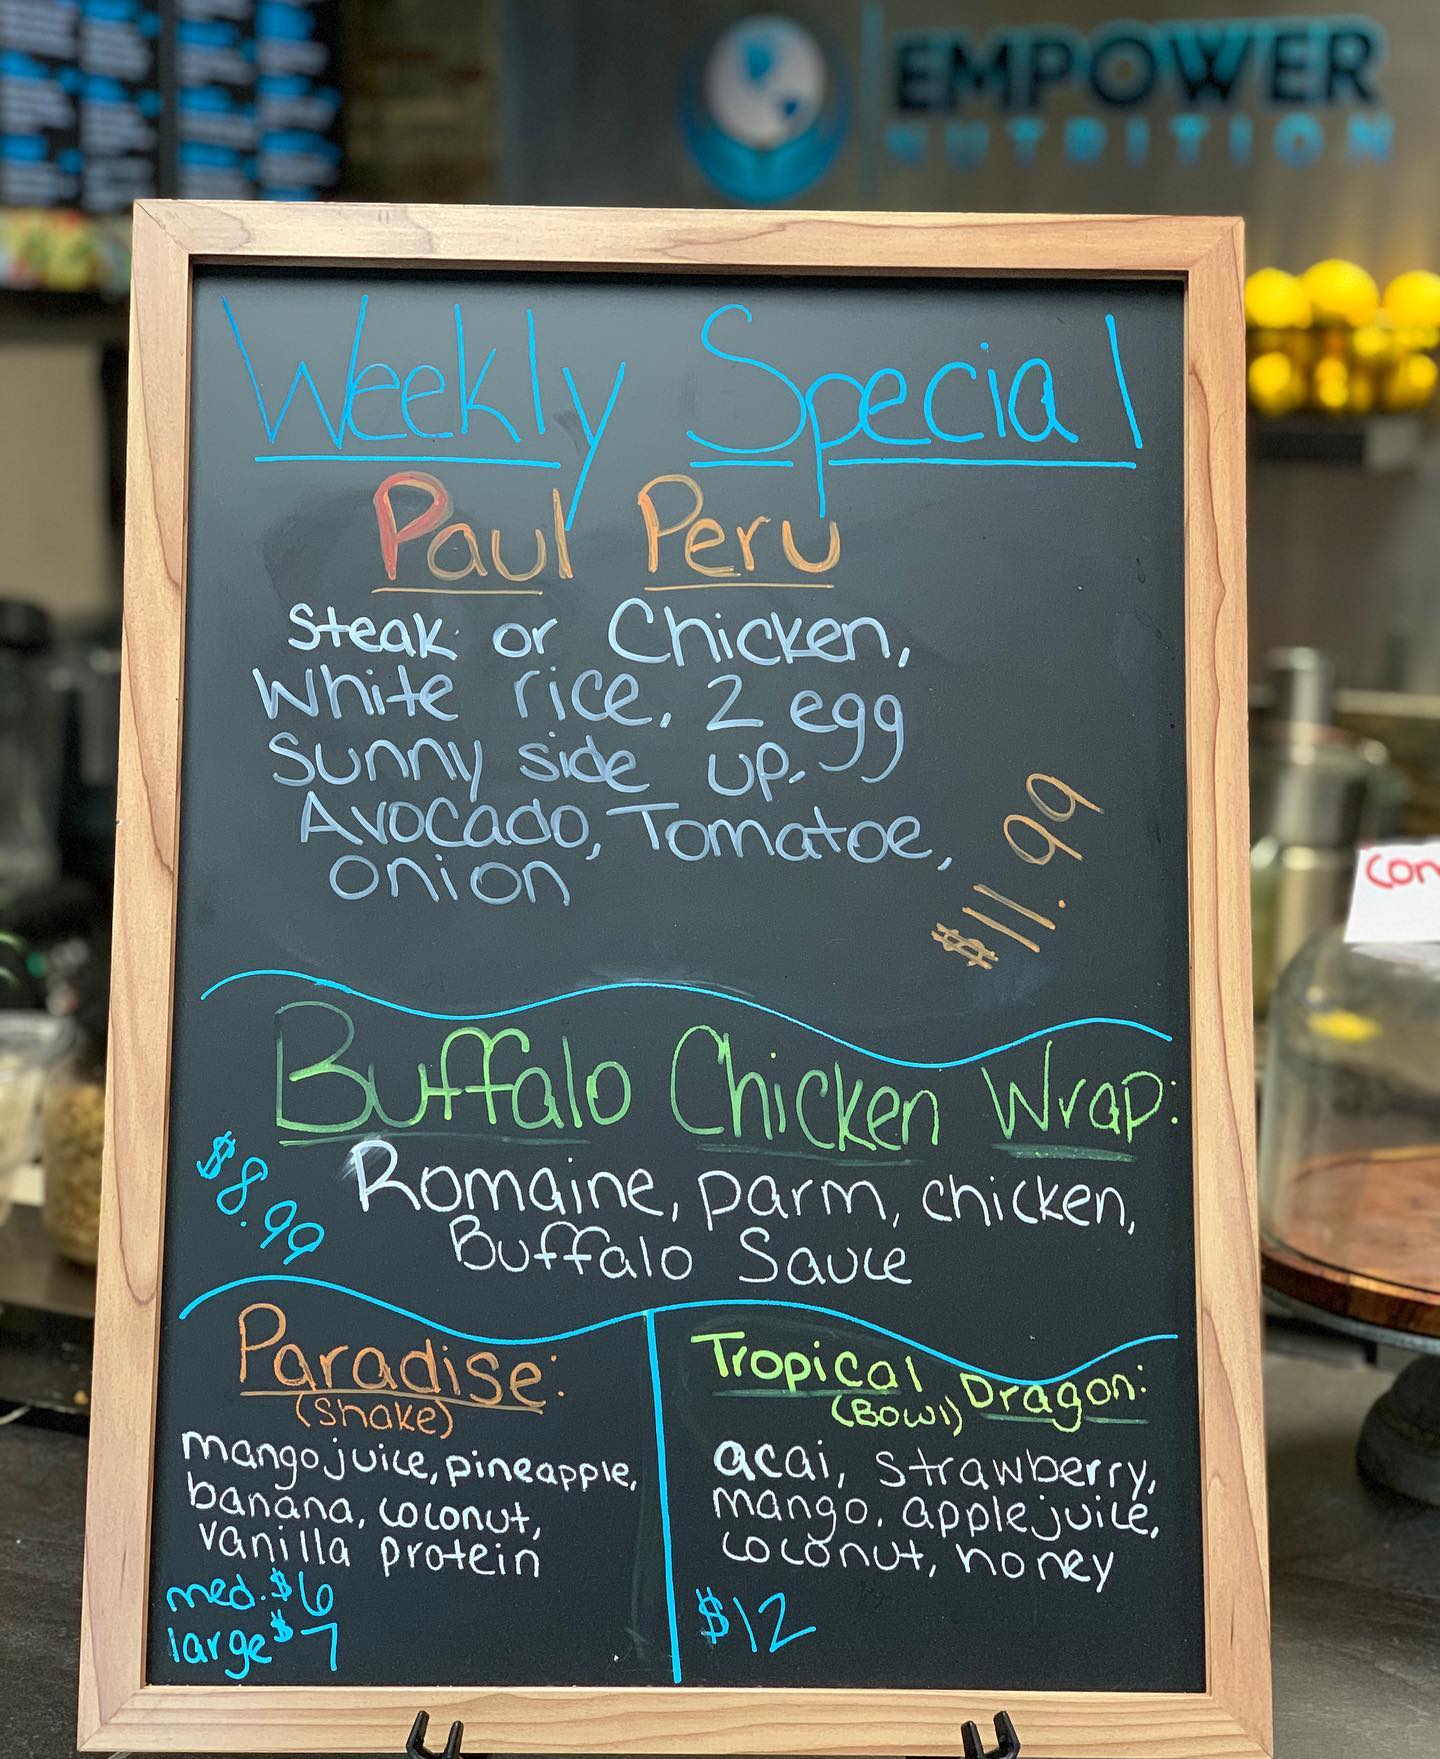 EMPOWER
NUTRITION
Weekly Special
Paul Peru
Steak or Chicken,
White rice, 2 egg
Sunny side up.
Avocado, Tomatoe,
onion
$11.99
Buffalo Chicken Wrap:
$8.99
Romaine, parm, chicken,
Buffalo Sauce
Paradise:
(Shake)
mango juice, pineapple,
banana, coconut,
vanilla protein
med. $6
large $7
Tropical Dragon:
(Bowl)
acai, strawberry,
mango, apple juice,
coconut, honey
$12